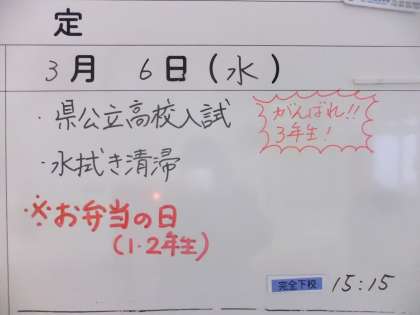 定
3月 6日(水)
・県公立高校入試
がんばれ!!
3年生!
・水拭き清掃
※お弁当の日
(1・2年生)
完全下校 15:15